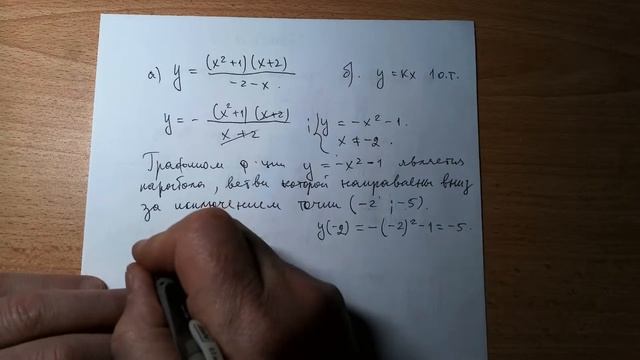 а) y = (x²+1)(x+2) / -2-x. б). y = кx 1 о.т.
y = - (x²+1)(x+2) / x+2 ; { y = -x²-1. x ≠ -2.
Графиком ф-ции y = -x²-1 является
парабола, ветви которой направлены вниз
за исключением точки (-2 ; -5).
y(-2) = -(-2)²-1 = -5.